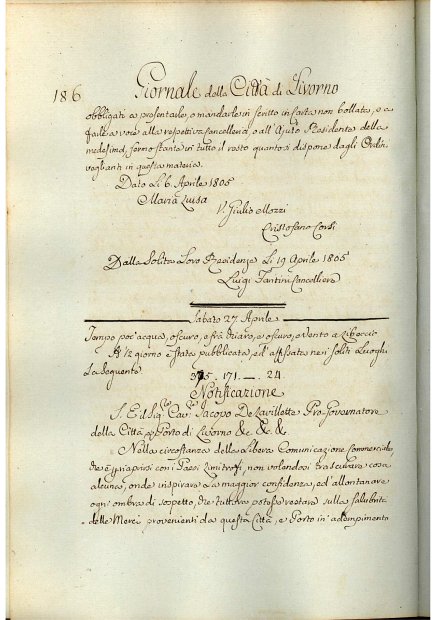 186 Giornale della Città di Livorno
obbligati a presentarle, o mandarle in scritto in carta non bollata, o a
farle a voce alla respettiva Cancelleria, o all' Ajuto Residente della
medesima, fermo stante in tutto il resto quanto si dispone dagli Ordini
veglianti in questa materia.
Dato Li 6. Aprile 1805
Maria Luisa
V. Giulio Mozzi
Cristofano Corsi
Dalla Solita Loro Residenza Li 19 Aprile 1805
Luigi Fantini Cancelliere
Sabato 27. Aprile
Tempo poc' acqua, oscuro, e frà chiaro, e oscuro, e Vento a Libeccio
A' 12 giorno è stata pubblicata, ed' affissata nei soliti Luoghi
La Seguente 375. 171. — . 24
Notificazione
S. E. il Sig. Cav. Jacopo De Lavillette Pro-Governatore
della Città, e Porto di Livorno &c. &c. &
Nella circostanza della Libera Comunicazione Commerciale,
che è per aprirsi con i Paesi Limitrofi, non volendosi trascurare cosa
alcuna, onde inspirare la maggior confidenza, ed' allontanare
ogni ombra di sospetto, che tuttora potesse restare sulla salubrità
delle Merci provenienti da questa Città, e Porto in' adempimento